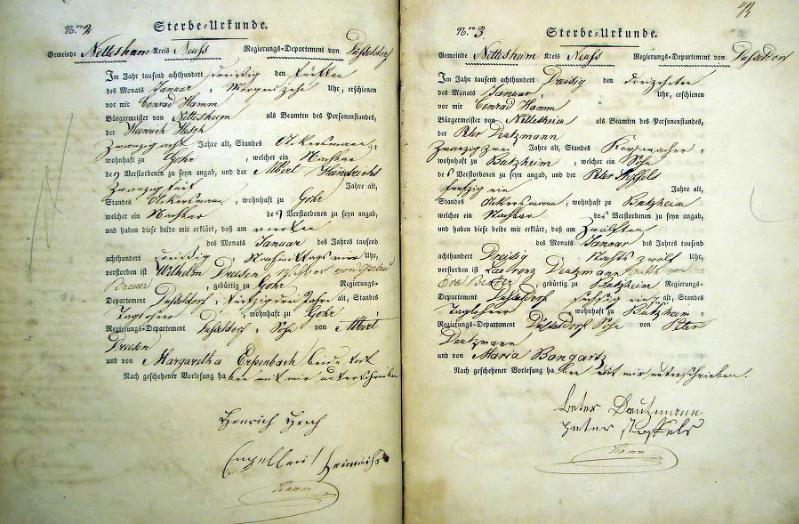 Nro 2
Sterbe-Urkunde.
Gemeinde Nettesheim Kreis Neuss Regierungs-Departement von Düsseldorf
Im Jahr tausend achthundert dreißig den fünften
des Monats Januar, Morgens zehn Uhr, erschienen
vor mir Conrad Hamm
Bürgermeister von Nettesheim als Beamten des Personenstandes,
der Heinrich Hesch
zwanzig acht Jahre alt, Standes Ackersmann,
wohnhaft zu Gohr, welcher ein Nachbar
des Verstorbenen zu seyn angab, und der Albert
Jahre alt,
Standes Ackersmann, wohnhaft zu Gohr
welcher ein Nachbar des Verstorbenen zu seyn angab,
und haben diese beide mir erklärt, daß am vierten
des Monats Januar des Jahres tausend
achthundert dreißig, Nachmittags vier Uhr,
verstorben ist Wilhelm Driesen
Breuer, gebürtig zu Gohr Regierungs-
Departement Düsseldorf, fünfzig drei Jahre alt, Standes
Taglöhner, wohnhaft zu Gohr
Regierungs-Departement Düsseldorf, Sohn von Albert
Driesen
und von Margaretha Erpenbach beide todt
Nach geschehener Vorlesung haben mit mir unterschrieben
Henrich Hesch
Hamm
Nro 3.
Sterbe-Urkunde.
Gemeinde Nettesheim Kreis Neuss Regierungs-Departement von Düsseldorf
Im Jahr tausend achthundert Dreißig den dreizehnten
des Monats Januar, Uhr, erschienen
vor mir Conrad Hamm
Bürgermeister von Nettesheim als Beamten des Personenstandes,
der Peter Deutzmann
zwanzig zwei Jahre alt, Standes
wohnhaft zu Butzheim, welcher ein Sohn
des Verstorbenen zu seyn angab, und der Peter
fünfzig ein Jahre alt,
Standes Ackersmann, wohnhaft zu Butzheim
welcher ein Nachbar des Verstorbenen zu seyn angab,
und haben diese beide mir erklärt, daß am zwölften
des Monats Januar des Jahres tausend
achthundert Dreißig Nachts zwölf Uhr,
verstorben ist Deutzmann
Eva Becker, gebürtig zu Butzheim Regierungs-
Departement Düsseldorf alt, Standes
Taglöhner, wohnhaft zu Butzheim
Regierungs-Departement Düsseldorf Sohn von Peter
Deutzmann
und von Maria Bongartz
Nach geschehener Vorlesung haben mit mir unterschrieben.
Peter Dautzmann
Peter
Hamm